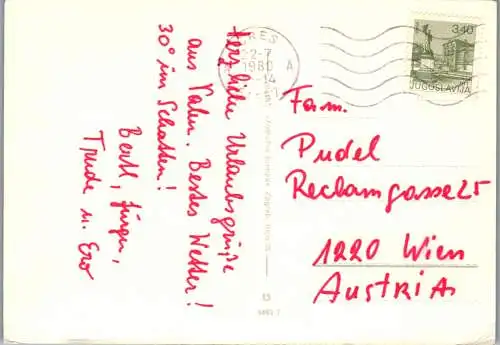 Herzliche Urlaubsgrüße
aus Vahn. Bestes Wetter!
30° im Schatten!
Bertl, Jürgen,
Trude u. Ero
RES
22-7
1980 A
-14
3.40
JUGOSLAVIJA
Fam.
Pudel
Reclamgasse 25
1220 Wien
AUSTRIA
13